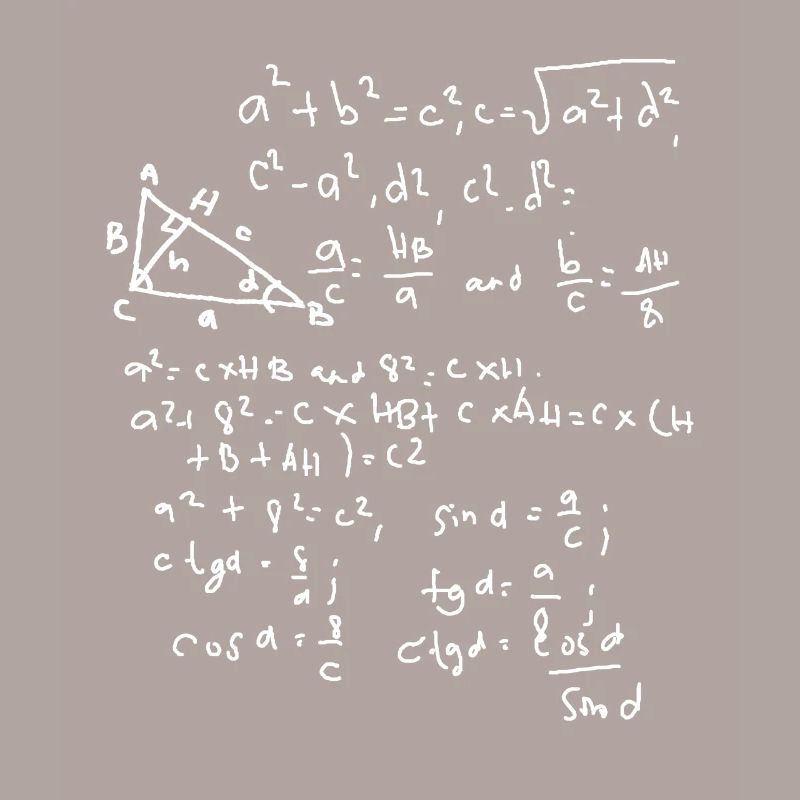 a² + b² = c², c = √a² + d²,
c² - a², d², c² - d² =
A
H
B
c
h
d
C
a
B
a/c = HB/a and b/c = AH/8
a² = c × HB and 8² = c × H.
a² + 8² = c × HB + c × AH = c × (H
+ B + AH) = c2
a² + 8² = c², sin d = a/c;
ctgd = 8/a; tg d = a/8;
cos d = 8/c ctgd = cos d/sin d